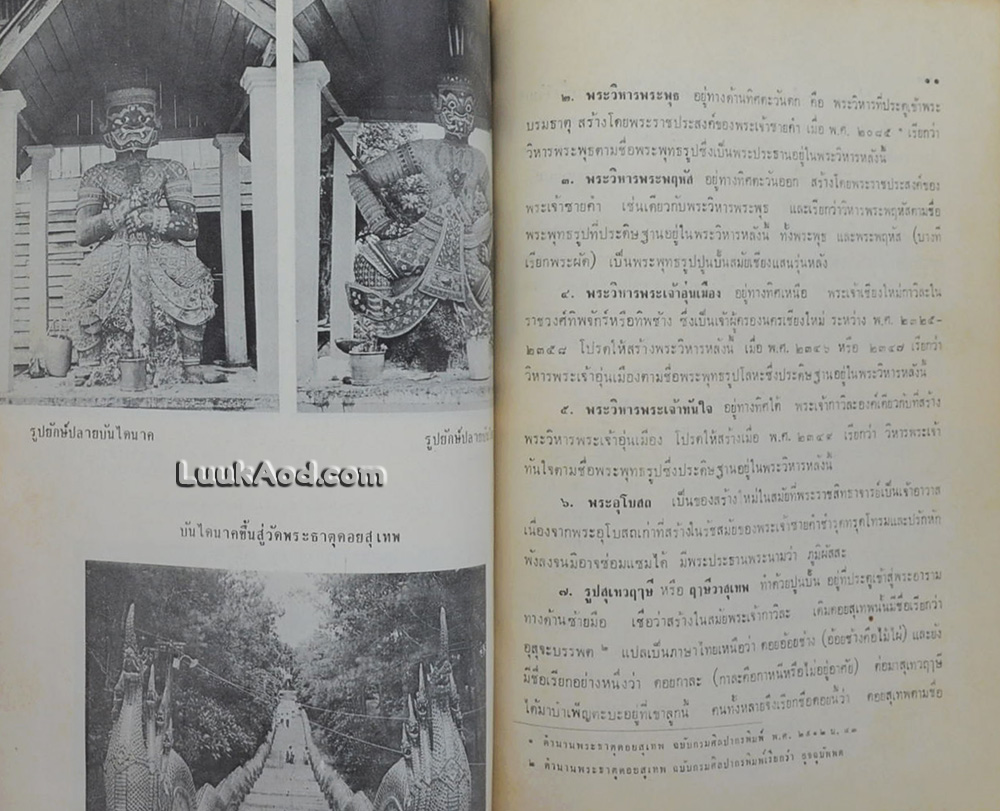 รูปยักษ์ปลายบันไดนาค
รูปยักษ์ปลายบัน
LuukAod.com
บันไดนาคขึ้นสู่วัดพระธาตุดอยสุเทพ
๑๑
๒. พระวิหารพระพุธ อยู่ทางด้านทิศตะวันตก คือ พระวิหารที่ประตูเข้าพระ
บรมธาตุ สร้างโดยพระราชประสงค์ของพระเจ้าซายคำ เมื่อ พ.ศ. ๒๐๘๕ ๑ เรียกว่า
วิหารพระพุธตามชื่อพระพุทธรูปซึ่งเป็นพระประธานอยู่ในพระวิหารหลังนี้
๓. พระวิหารพระพฤหัส อยู่ทางทิศตะวันออก สร้างโดยพระราชประสงค์ของ
พระเจ้าซายคำ เช่นเดียวกับพระวิหารพระพุธ และเรียกว่าวิหารพระพฤหัสตามชื่อ
พระพุทธรูปที่ประดิษฐานอยู่ในพระวิหารหลังนี้ ทั้งพระพุธ และพระพฤหัส (บางที
เรียกพระผัด) เป็นพระพุทธรูปปูนปั้นสมัยเชียงแสนรุ่นหลัง
๔. พระวิหารพระเจ้าอุ่นเมือง อยู่ทางทิศเหนือ พระเจ้าเชียงใหม่กาวิละใน
ราชวงศ์ทิพจักร์หรือทิพช้าง ซึ่งเป็นเจ้าผู้ครองนครเชียงใหม่ ระหว่าง พ.ศ. ๒๓๒๕-
๒๓๕๘ โปรดให้สร้างพระวิหารหลังนี้ เมื่อ พ.ศ. ๒๓๔๖ หรือ ๒๓๔๗ เรียกว่า
วิหารพระเจ้าอุ่นเมืองตามชื่อพระพุทธรูปโลหะซึ่งประดิษฐานอยู่ในพระวิหารหลังนี้
๕. พระวิหารพระเจ้าทันใจ อยู่ทางทิศใต้ พระเจ้ากาวิละองค์เดียวกับที่สร้าง
พระวิหารพระเจ้าอุ่นเมือง โปรดให้สร้างเมื่อ พ.ศ. ๒๓๔๙ เรียกว่า วิหารพระเจ้า
ทันใจตามชื่อพระพุทธรูปซึ่งประดิษฐานอยู่ในพระวิหารหลังนี้
๖. พระอุโบสถ เป็นของสร้างใหม่ในสมัยที่พระราชสิทธาจารย์เป็นเจ้าอาวาส
เนื่องจากพระอุโบสถเก่าที่สร้างในรัชสมัยของพระเจ้าซายคำชำรุดทรุดโทรมและปรักหัก
พังลงจนมิอาจซ่อมแซมได้ มีพระประธานพระนามว่า ภูมิผัสสะ
๗. รูปสุเทวฤๅษี หรือ ฤๅษีวาสุเทพ ทำด้วยปูนปั้น อยู่ที่ประตูเข้าสู่พระอาราม
ทางด้านซ้ายมือ เชื่อว่าสร้างในสมัยพระเจ้ากาวิละ เดิมดอยสุเทพนั้นมีชื่อเรียกว่า
อุสุจะบรรพต ๒ แปลเป็นภาษาไทยเหนือว่า ดอยอ้อยช้าง (อ้อยช้างคือไม้ไผ่) และยัง
มีชื่อเรียกอย่างหนึ่งว่า ดอยกาละ (กาละคือกาหนีหรือไม่อยู่อาศัย) ต่อมาสุเทวฤๅษี
ได้มาบำเพ็ญตะบะอยู่ที่เขาลูกนี้ คนทั้งหลายจึงเรียกชื่อดอยนี้ว่า ดอยสุเทพตามชื่อ
๑ ตำนานพระธาตุดอยสุเทพ ฉบับกรมศิลปากรพิมพ์ พ.ศ. ๒๕๑๒ น. ๔๓
๒ ตำนานพระธาตุดอยสุเทพ ฉบับกรมศิลปากรพิมพ์เรียกว่า